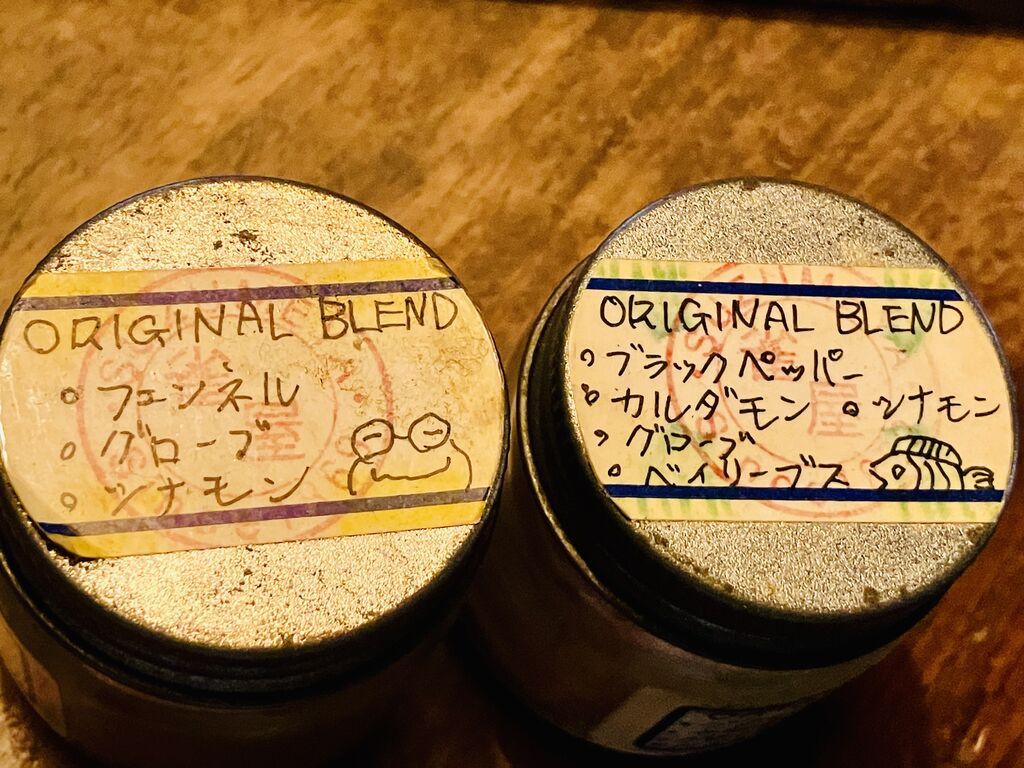 ORIGINAL BLEND
・フェンネル
・グローブ
・シナモン
ORIGINAL BLEND
・ブラックペッパー
・カルダモン ・シナモン
・グローブ
・ベイリーブス